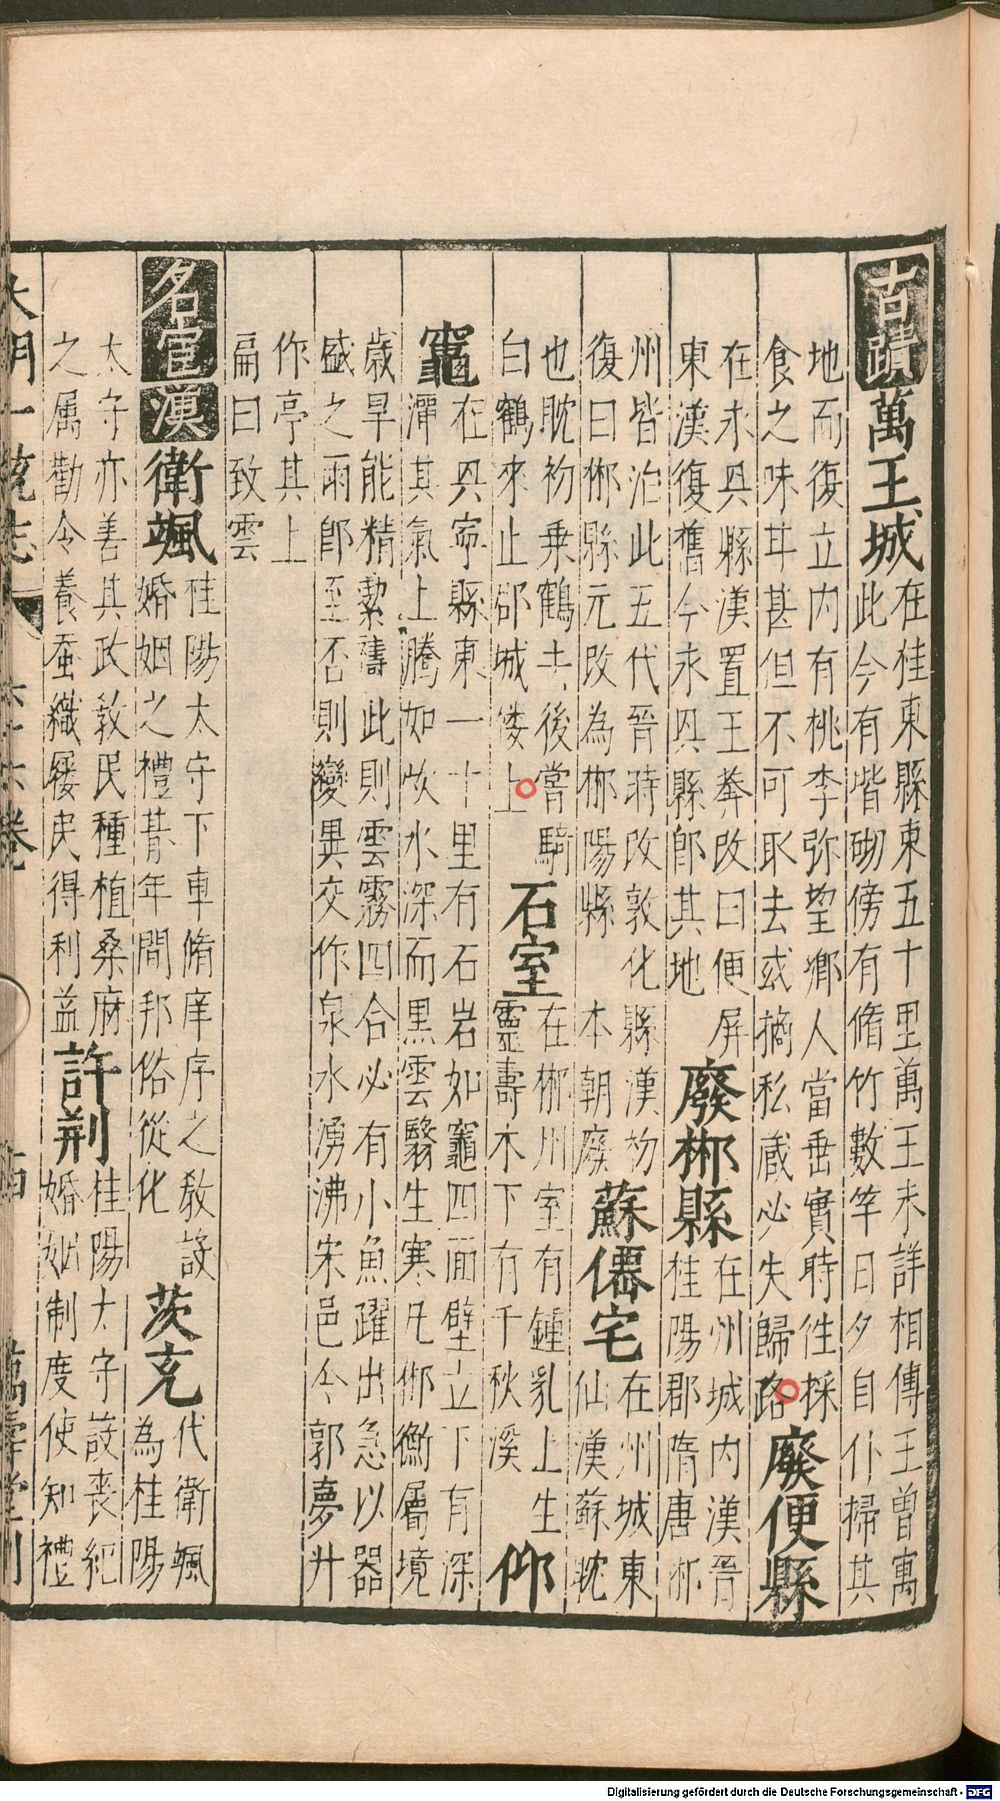 古蹟 萬王城 在桂東縣東五十里萬王未詳相傳王曾寓
此今有堦砌傍有脩竹數竿日夕自仆掃其
地而復立内有桃李弥望鄉人當垂實時徃採
食之味甘甚但不可取去或摘私藏必失歸路 廢便縣
在永興縣漢置王莽改曰便屏
東漢復舊今永興縣卽其地 廢郴縣
在州城内漢晉
桂陽郡隋唐郴
州皆治此五代晉時改敦化縣漢初
復曰郴縣元改為郴陽縣 本朝廢 蘇僊宅
在州城東
仙漢蘇耽
也耽初乗鶴去後嘗騎
白鶴來止郡城倭上 石室
在郴州室有鍾乳上生
靈壽木下有千秋溪 仰
竈 在興寧縣東一十里有石岩如竈四面壁立下有深
潭其氣上騰如炊水深而黑雲翳生寒凡郴衡屬境
歲旱能精潔禱此則雲霧四合必有小魚躍出急以器
盛之雨卽至否則變異交作泉水湧沸宋邑令郭夢升
作亭其上
扁曰致雲
名宦 漢 衛颯 桂陽太守下車脩庠序之教設
婚姻之禮朞年間邦俗從化 茨充
代衛颯
為桂陽
太守亦善其政教民種植桑麻
之属勸令養蚕織屨民得利益 許荆
桂陽太守設喪紀
婚姻制度使知禮
大明一統志 六十六卷 萬壽堂刊
Digitalisierung gefördert durch die Deutsche Forschungsgemeinschaft - DFG